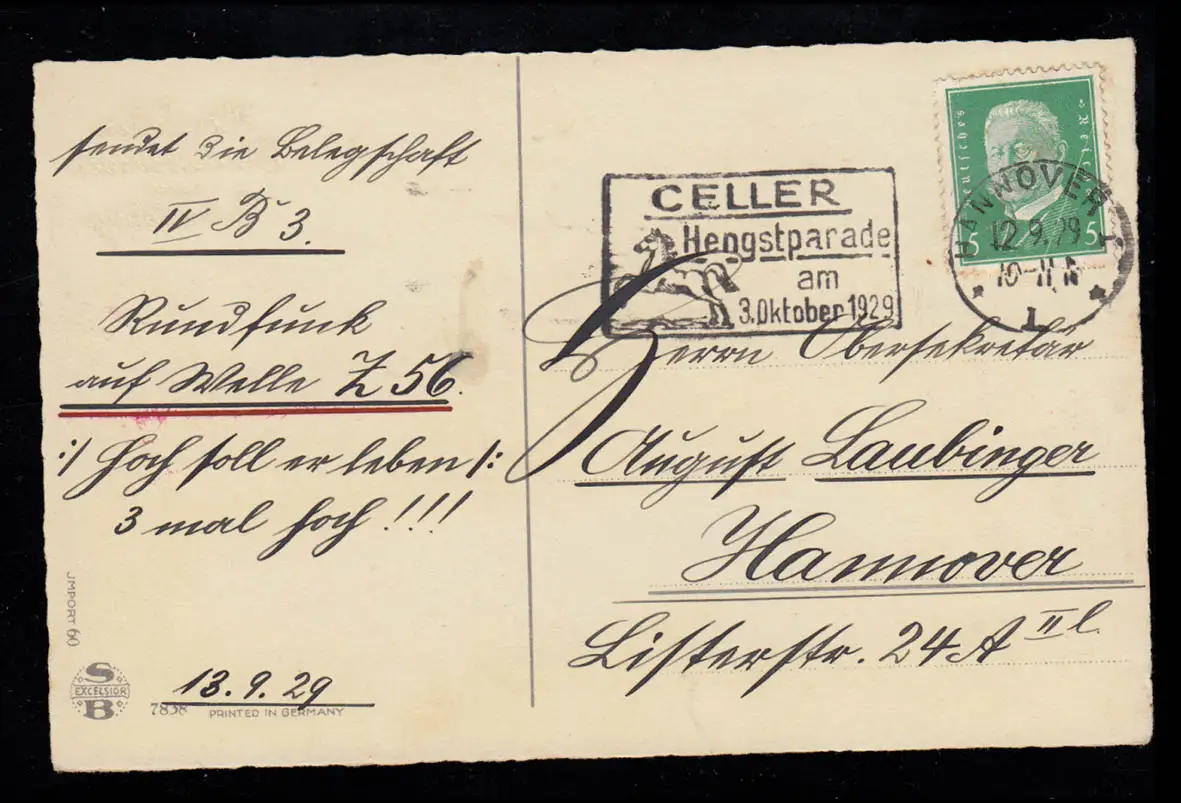 sendet die Belegschaft
IV B 3.
Rundfunk
auf Welle Z 56.
:/ Hoch soll er leben /:
3 mal hoch!!!
13.9.29
JMPORT 60
S
EXCELSIOR
B
7838 PRINTED IN GERMANY
CELLER
Hengstparade
am
3. Oktober 1929
Deutsches Reich
5 5
HANNOVER
12.9.29
10-11
1
Herrn Obersekretär
August Laubinger
Hannover
Listerstr. 24A II l.